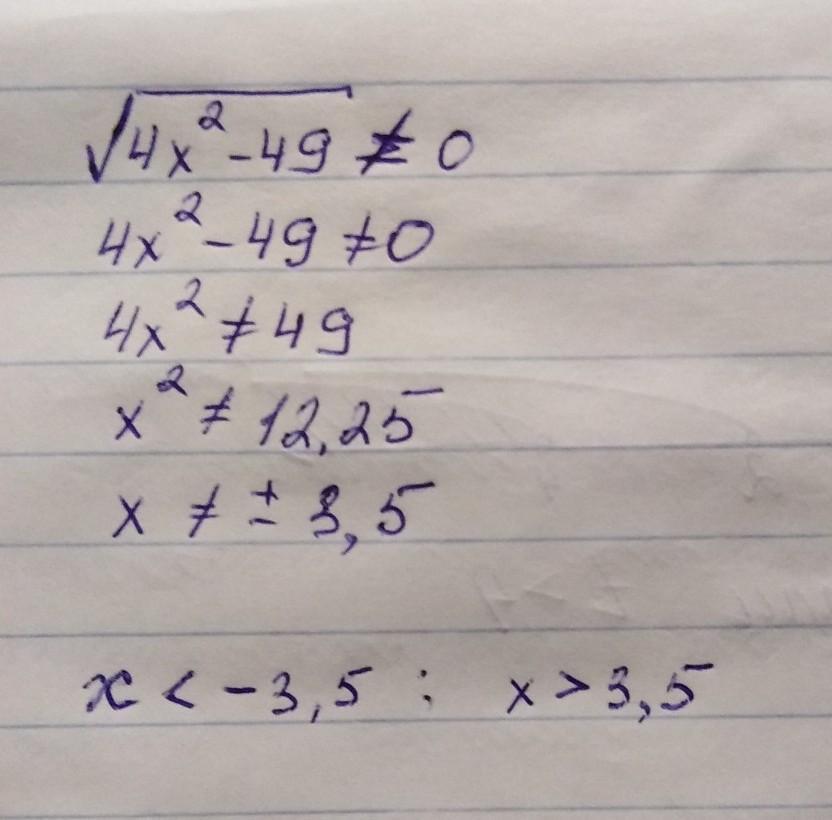 √4x² - 49 ≠ 0
4x² - 49 ≠ 0
4x² ≠ 49
x² ≠ 12,25
x ≠ ± 3,5
x < - 3,5 : x > 3,5